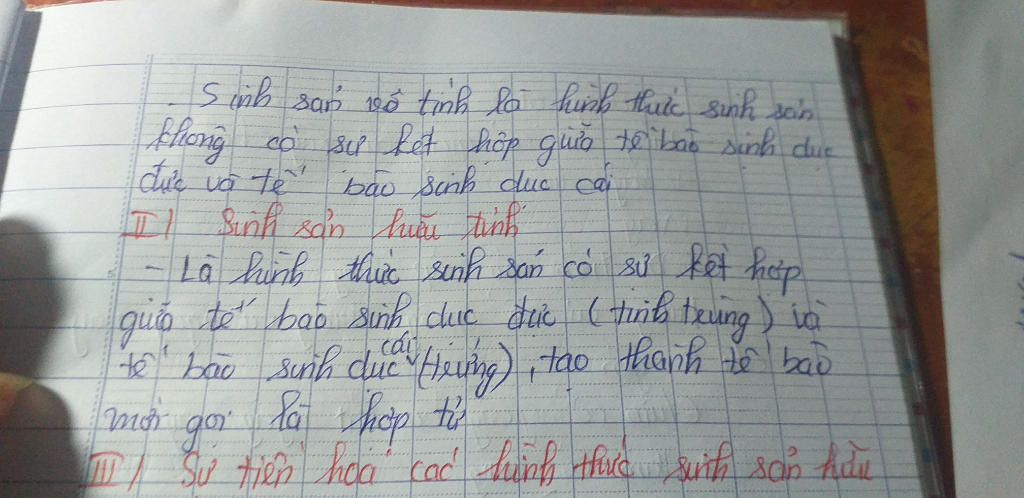 - Sinh sản vô tính là hình thức sinh sản
không có sự kết hợp giữa tế bào sinh dục
đực và tế bào sinh dục cái
II/ Sinh sản hữu tính
- Là hình thức sinh sản có sự kết hợp
giữa tế bào sinh dục đực (tinh trùng) và
tế bào sinh dục cái (trứng), tạo thành tế bào
mới gọi là hợp tử
III/ Sự tiến hoá các hình thức sinh sản hữu